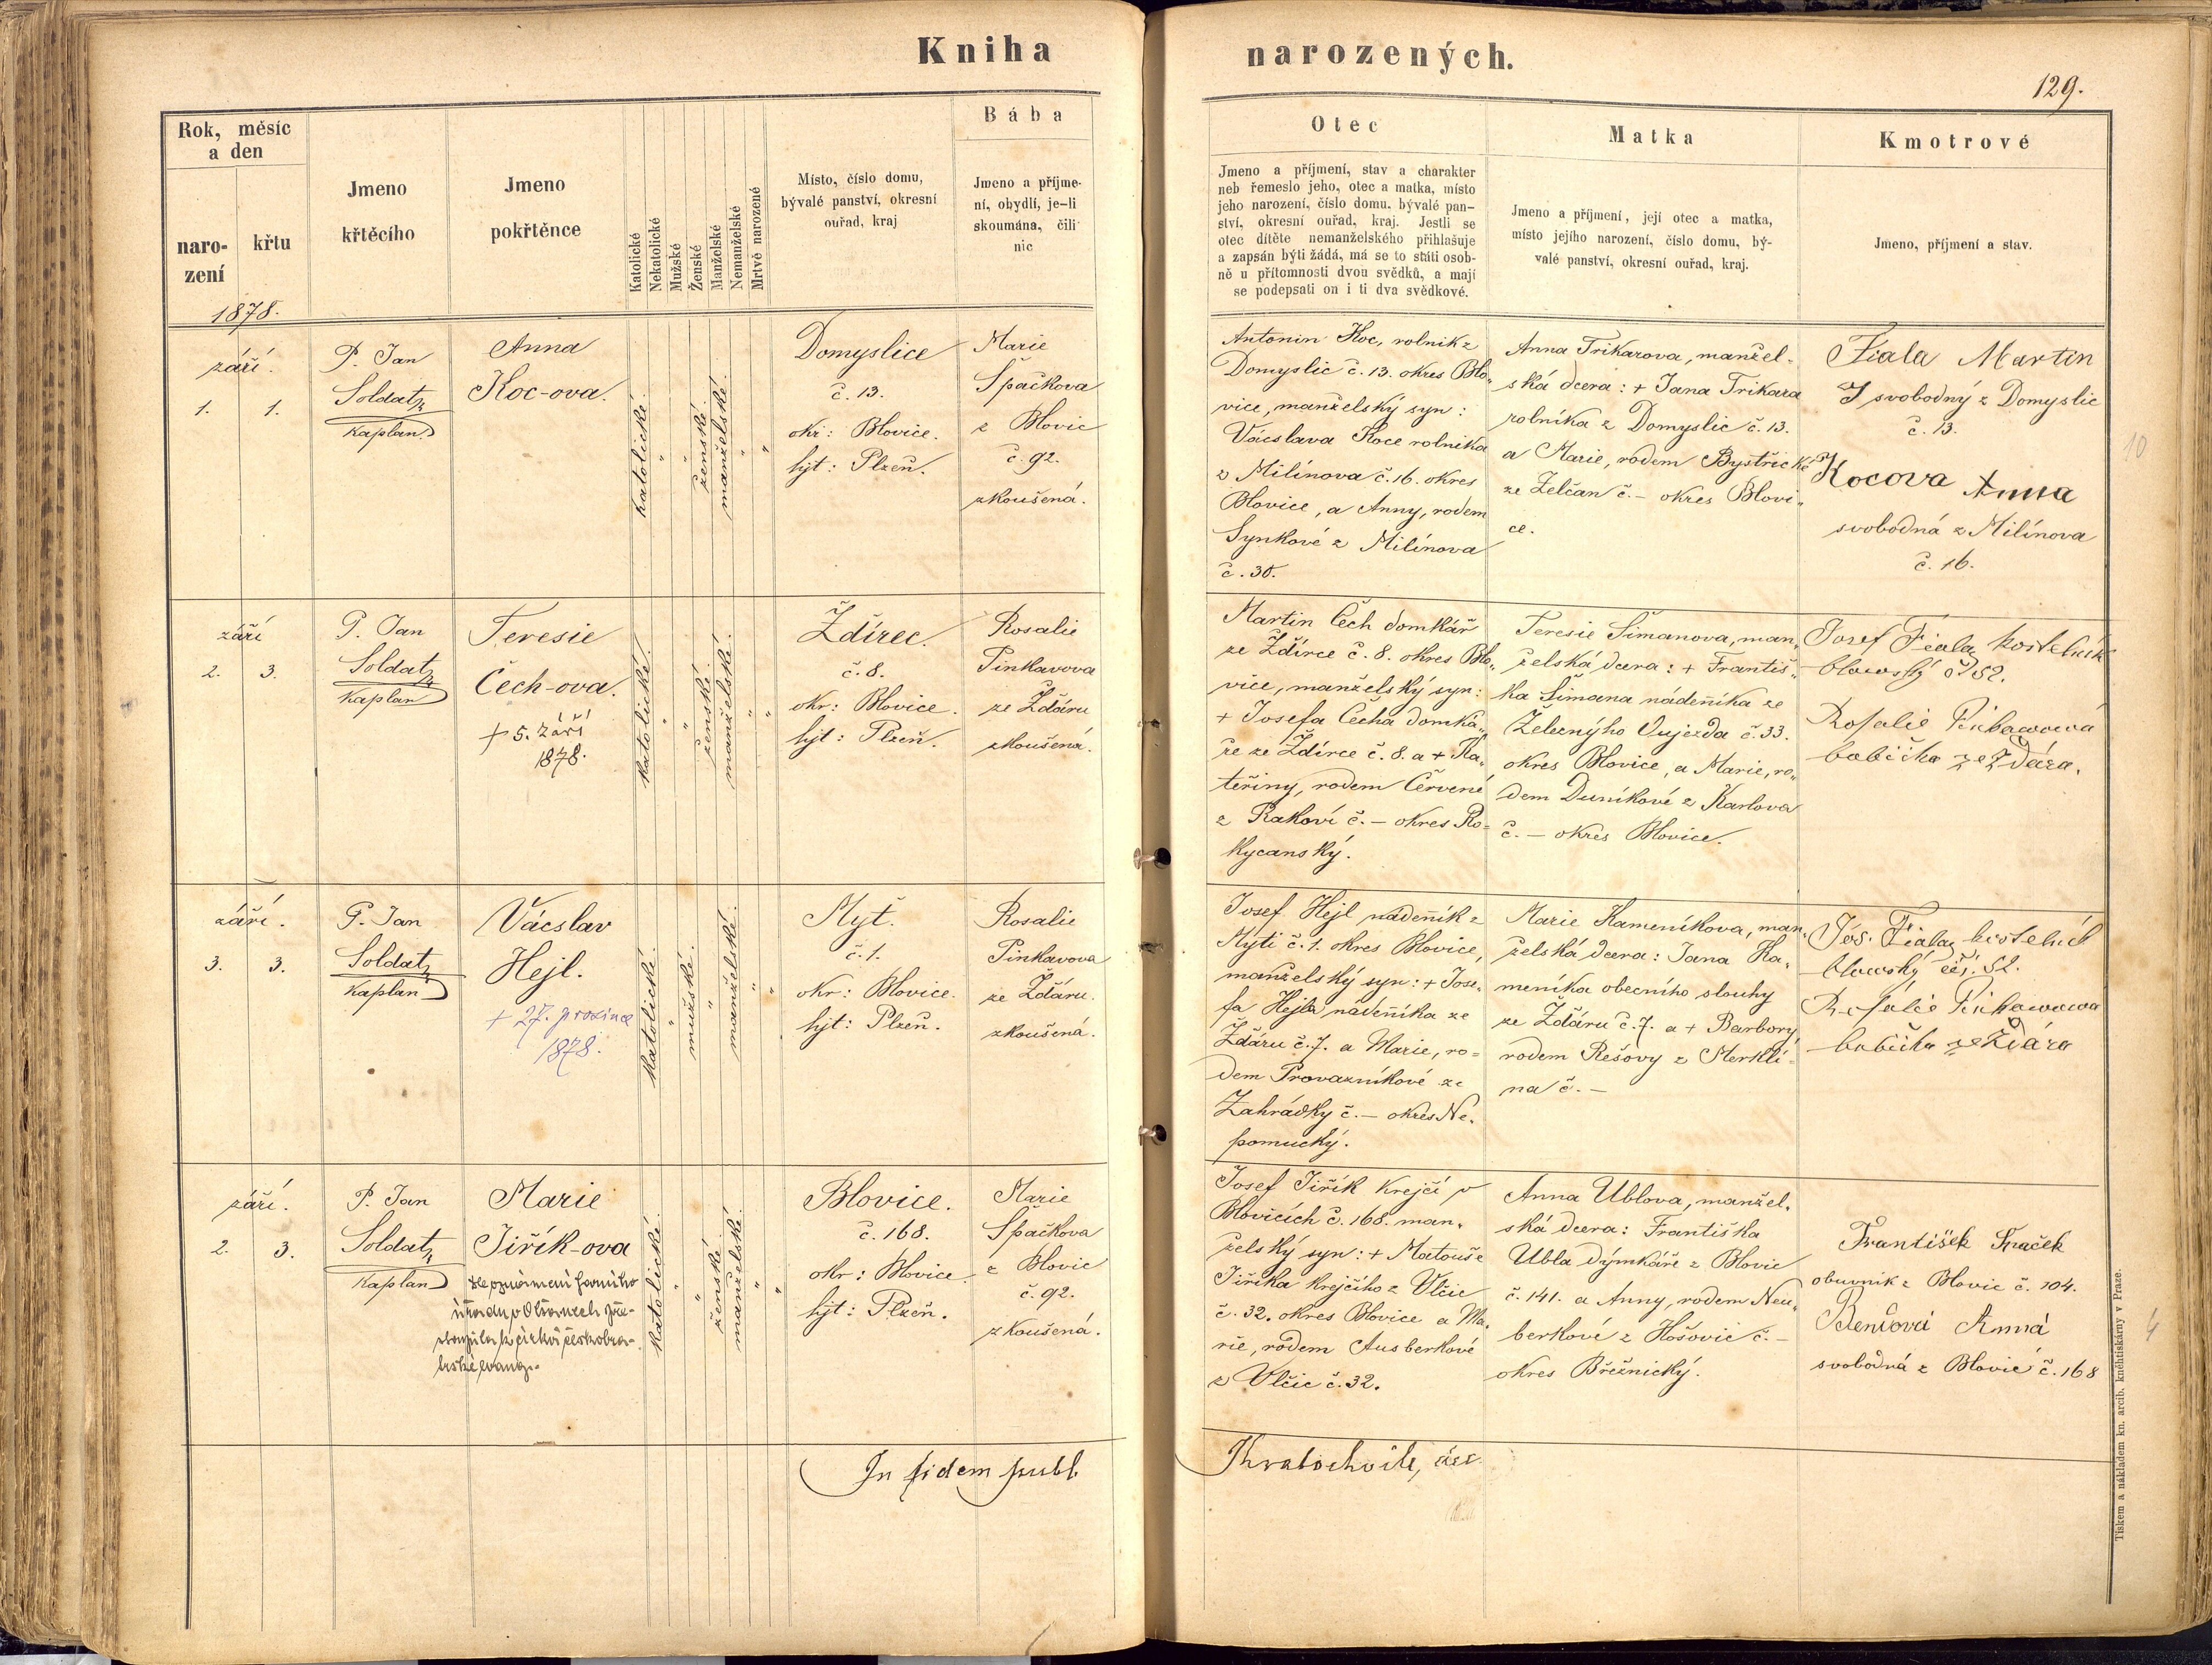 Kniha
narozených.
129.
Rok, měsíc
a den
naro-
zení
křtu
Jmeno
křtěcího
Jmeno
pokřtěnce
Katolické
Nekatolické
Mužské
Ženské
Manželské
Nemanželské
Mrtvě narozené
Místo, číslo domu,
bývalé panství, okresní
ouřad, kraj
Bába
Jmeno a příjme-
ní, obydlí, je-li
skoumána, čili
nic
Otec
Jmeno a příjmení, stav a charakter
neb řemeslo jeho, otec a matka, místo
jeho narození, číslo domu, bývalé pan-
ství, okresní ouřad, kraj. Jestli se
otec dítěte nemanželského přihlašuje
a zapsán býti žádá, má se to státi osob-
ně u přítomnosti dvou svědků, a mají
se podepsati on i ti dva svědkové.
Matka
Jmeno a příjmení, její otec a matka,
místo jejího narození, číslo domu, bý-
valé panství, okresní ouřad, kraj.
Kmotrové
Jmeno, příjmení a stav.
1878.
září.
1. 1.
P. Jan
Soldat
Kaplan
Anna
Koc-ova.
katolické.
ženské.
manželské.
Domyslice
č. 13.
okr: Blovice.
hjt: Plzeň.
Marie
Špačkova
z Blovic
č. 92.
zkoušená.
Antonin Koc, rolnik z
Domyslic č. 13. okres Blo„
vice, manželský syn:
Vácslava Koce rolnika
z Milínova č. 16. okres
Blovice, a Anny, rodem
Synkové z Milínova
č. 30.
Anna Trikarova, manžel-
ská dcera: + Jana Trikara
rolníka z Domyslic č. 13.
a Marie, rodem Bystřické
ze Želčan č. – okres Blovi„
ce.
Fiala Martin
svobodný z Domyslic
č. 13.
Kocova Anna
svobodná z Milínova
č. 16.
10
září
2. 3.
P. Jan
Soldat
Kaplan
Teresie
Čech-ova.
+ 5. září
1878.
katolické.
ženské.
manželské.
Ždírec.
č. 8.
okr: Blovice.
hjt: Plzeň.
Rosalie
Pinkavova
ze Ždáru
zkoušená.
Martin Čech domkář
ze Ždírce č. 8. okres Blo„
vice, manželský syn:
+ Josefa Čecha domká„
ře ze Ždírce č. 8. a + Ka„
teřiny, rodem Červené
z Rakoví č. – okres Ro-
kycanský.
Teresie Šimanova, man„
želská dcera: + Františ„
ka Šimana nádeníka ze
Železnýho Oujezda č. 33.
okres Blovice, a Marie, ro„
dem Duníkové z Karlova
č. – okres Blovice.
Josef Fiala kostelník
blowský č 52.
Rosalie Pinkawowá
babička ze Ždára.
září.
3. 3.
P. Jan
Soldat
Kaplan
Vácslav
Hejl.
+ 27. prosince
1878.
katolické.
mužské.
manželské.
Myť.
č. 1.
okr: Blovice.
hjt: Plzeň.
Rosalie
Pinkavova
ze Ždáru.
zkoušená.
Josef Hejl nádeník z
Mýti č. 1. okres Blovice,
manželský syn: + Jose„
fa Hejla nádeníka ze
Ždáru č. 7. a Marie, ro-
dem Provazníkové ze
Zahrádky č. – okres Ne„
pomucký.
Marie Kameníkova, man„
želská dcera: Jana Ka„
meníka obecního slouhy
ze Ždáru č. 7. a + Barbory
rodem Rešovy z Merklí-
na č. –
Jos. Fiala kostelník
blawský čís. 52.
Rosalie Pinkawowa
babička ze Ždára
září.
2. 3.
P. Jan
Soldat
Kaplan
Marie
Jiřík-ova
dle oznámení farního
úřadu v
stoupila k církvi českobra-
trské evang.
katolické.
ženské.
manželské.
Blovice.
č. 168.
okr: Blovice.
hjt: Plzeň.
Marie
Špačkova
z Blovic
č. 92.
zkoušená.
Josef Jiřík krejčí v
Blovicích č. 168. man„
želský syn: + Matouše
Jiříka krejčího z Vlčic
č. 32. okres Blovice a Ma„
rie, rodem Ausberkové
z Vlčic č. 32.
Anna Ublova, manžel„
ská dcera: Františka
Ubla dýmkáře z Blovic
č. 141. a Anny, rodem Neu„
berkové z Hošovic č. –
okres Břežnický.
František
obuvník z Blovic č. 104.
Benčová Anna
svobodná z Blovic č. 168
4
In fidem publ
Kratochvíle,
Tiskem a nákladem kn. arcib. kněhtiskárny v Praze.